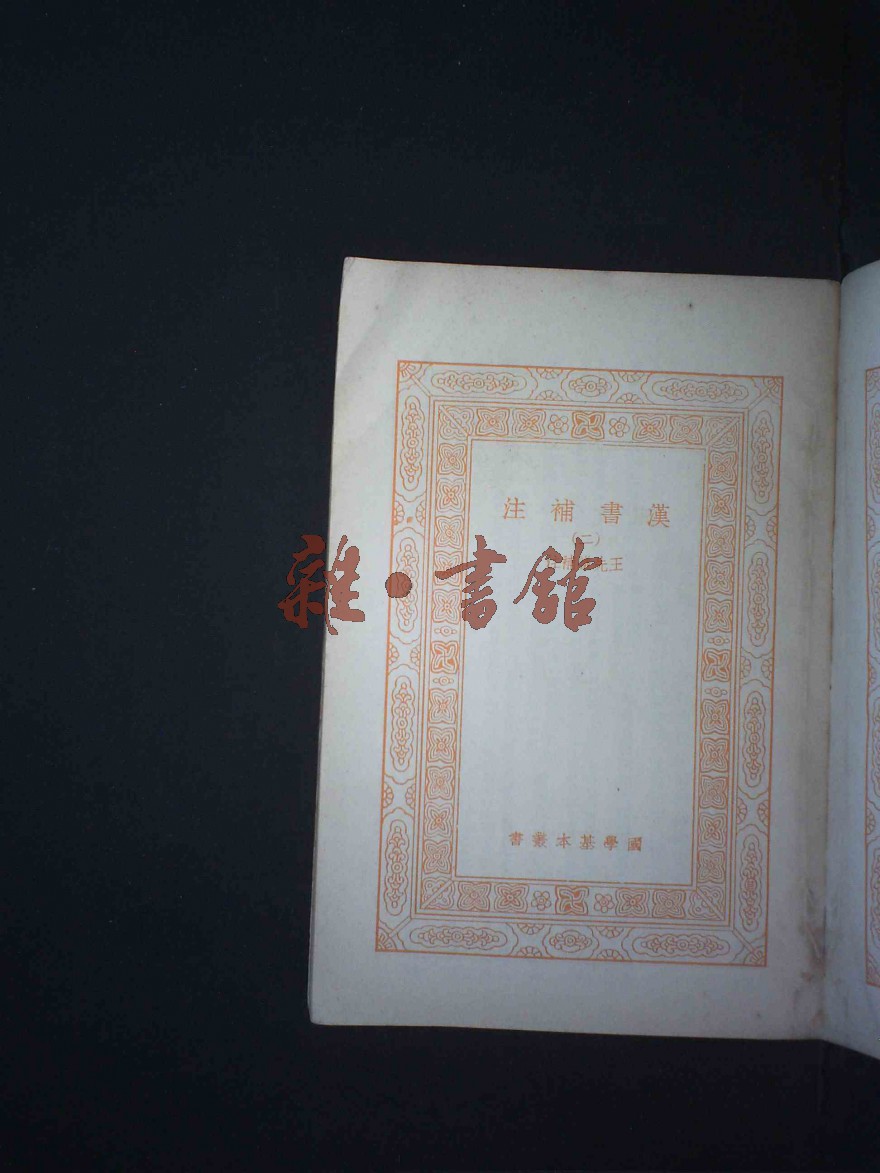 漢書補注
(二)
王先
雜·書館
國學基本叢書